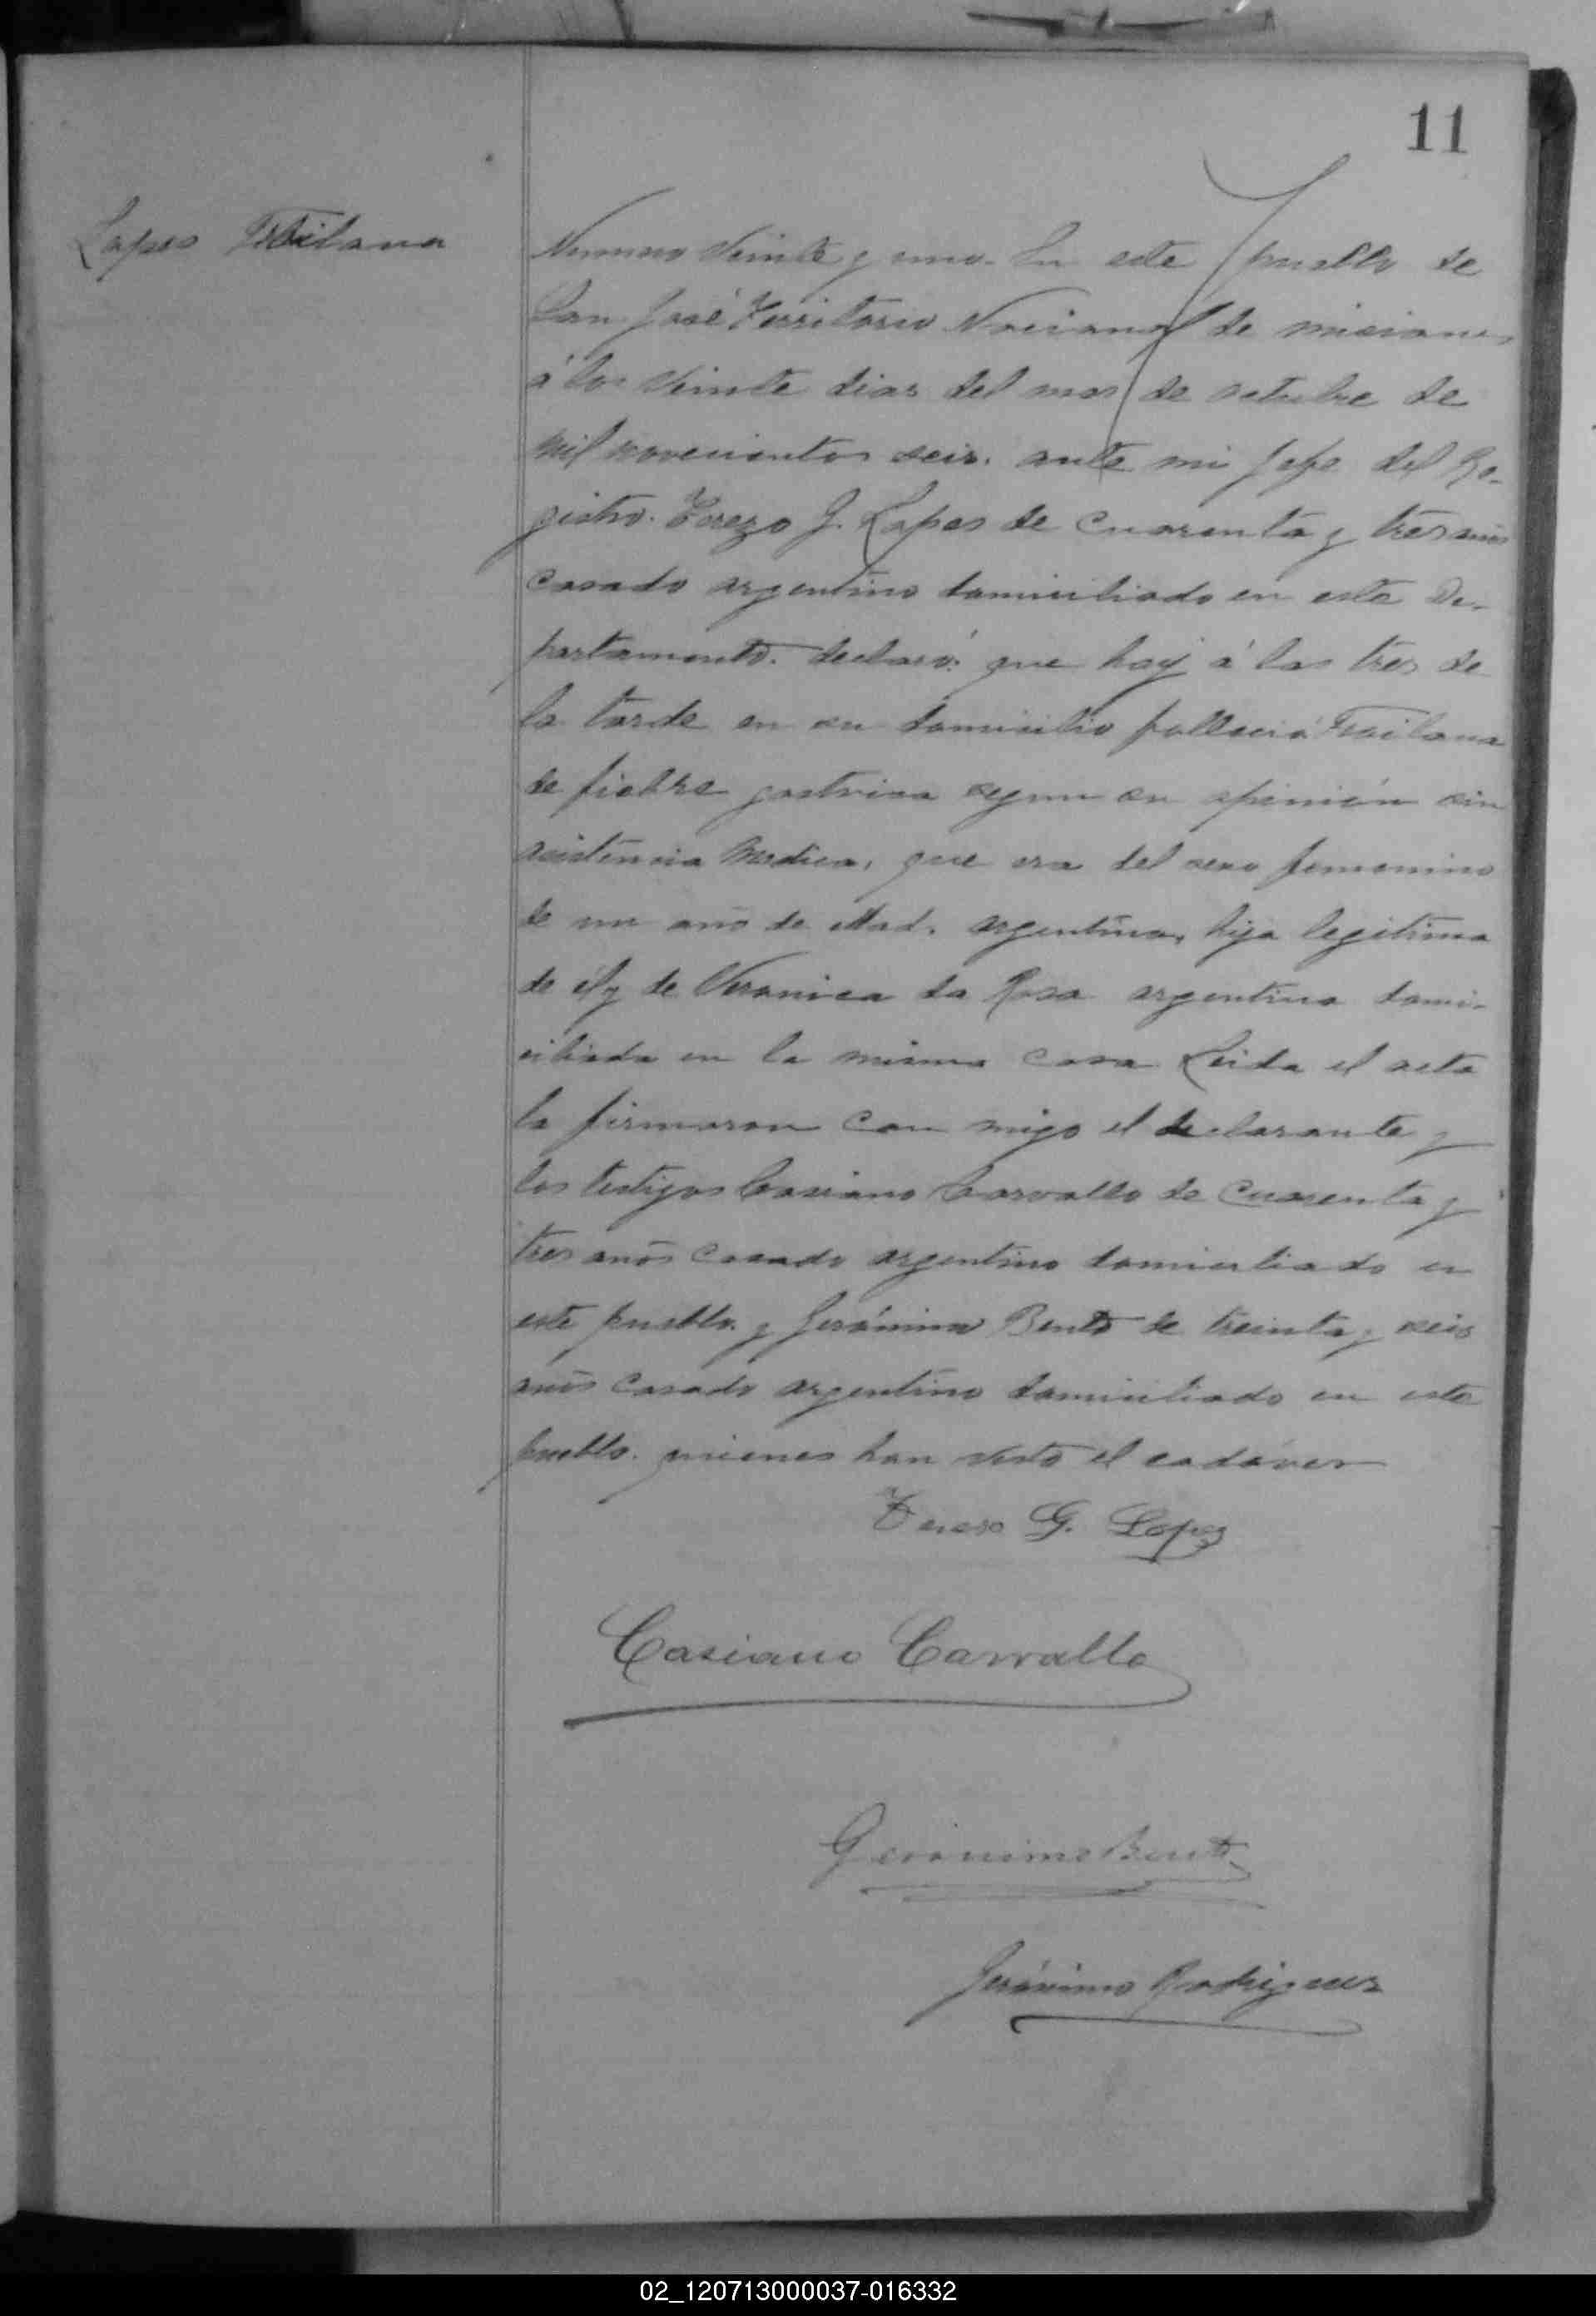 11
Lopes
Numero Veinte y uno. En este pueblo de
San José Territorio Nacional de misiones
á los Veinte dias del mes de octubre de
mil novecientos seis. ante mi Jefe del Re-
gistro. Terezo G. Lopes de cuarenta y tres años
casado argentino domiciliado en este De-
partamento. declaró: que hoy á las tres de
la tarde en su domicilio falleció
de fiebre gastrica segun su opinión sin
asistencia Medica, que era del sexo femenino
de un año de edad. argentina, hija legitima
de él y de Veronica da Rosa argentina domi-
ciliada en la misma casa Leida el acta
la firmaron con migo el declarante y
los testigos Casiano Carvallo de cuarenta y
tres años casado argentino domiciliado en
este pueblo. y Jerónimo Bento de treinta y seis
años casado argentino domiciliado en este
pueblo. quienes han visto el cadáver
Terezo G. Lopez
Casiano Carvallo
Geronimo Bento
Jerónimo Rodriguez
02_120713000037-016332